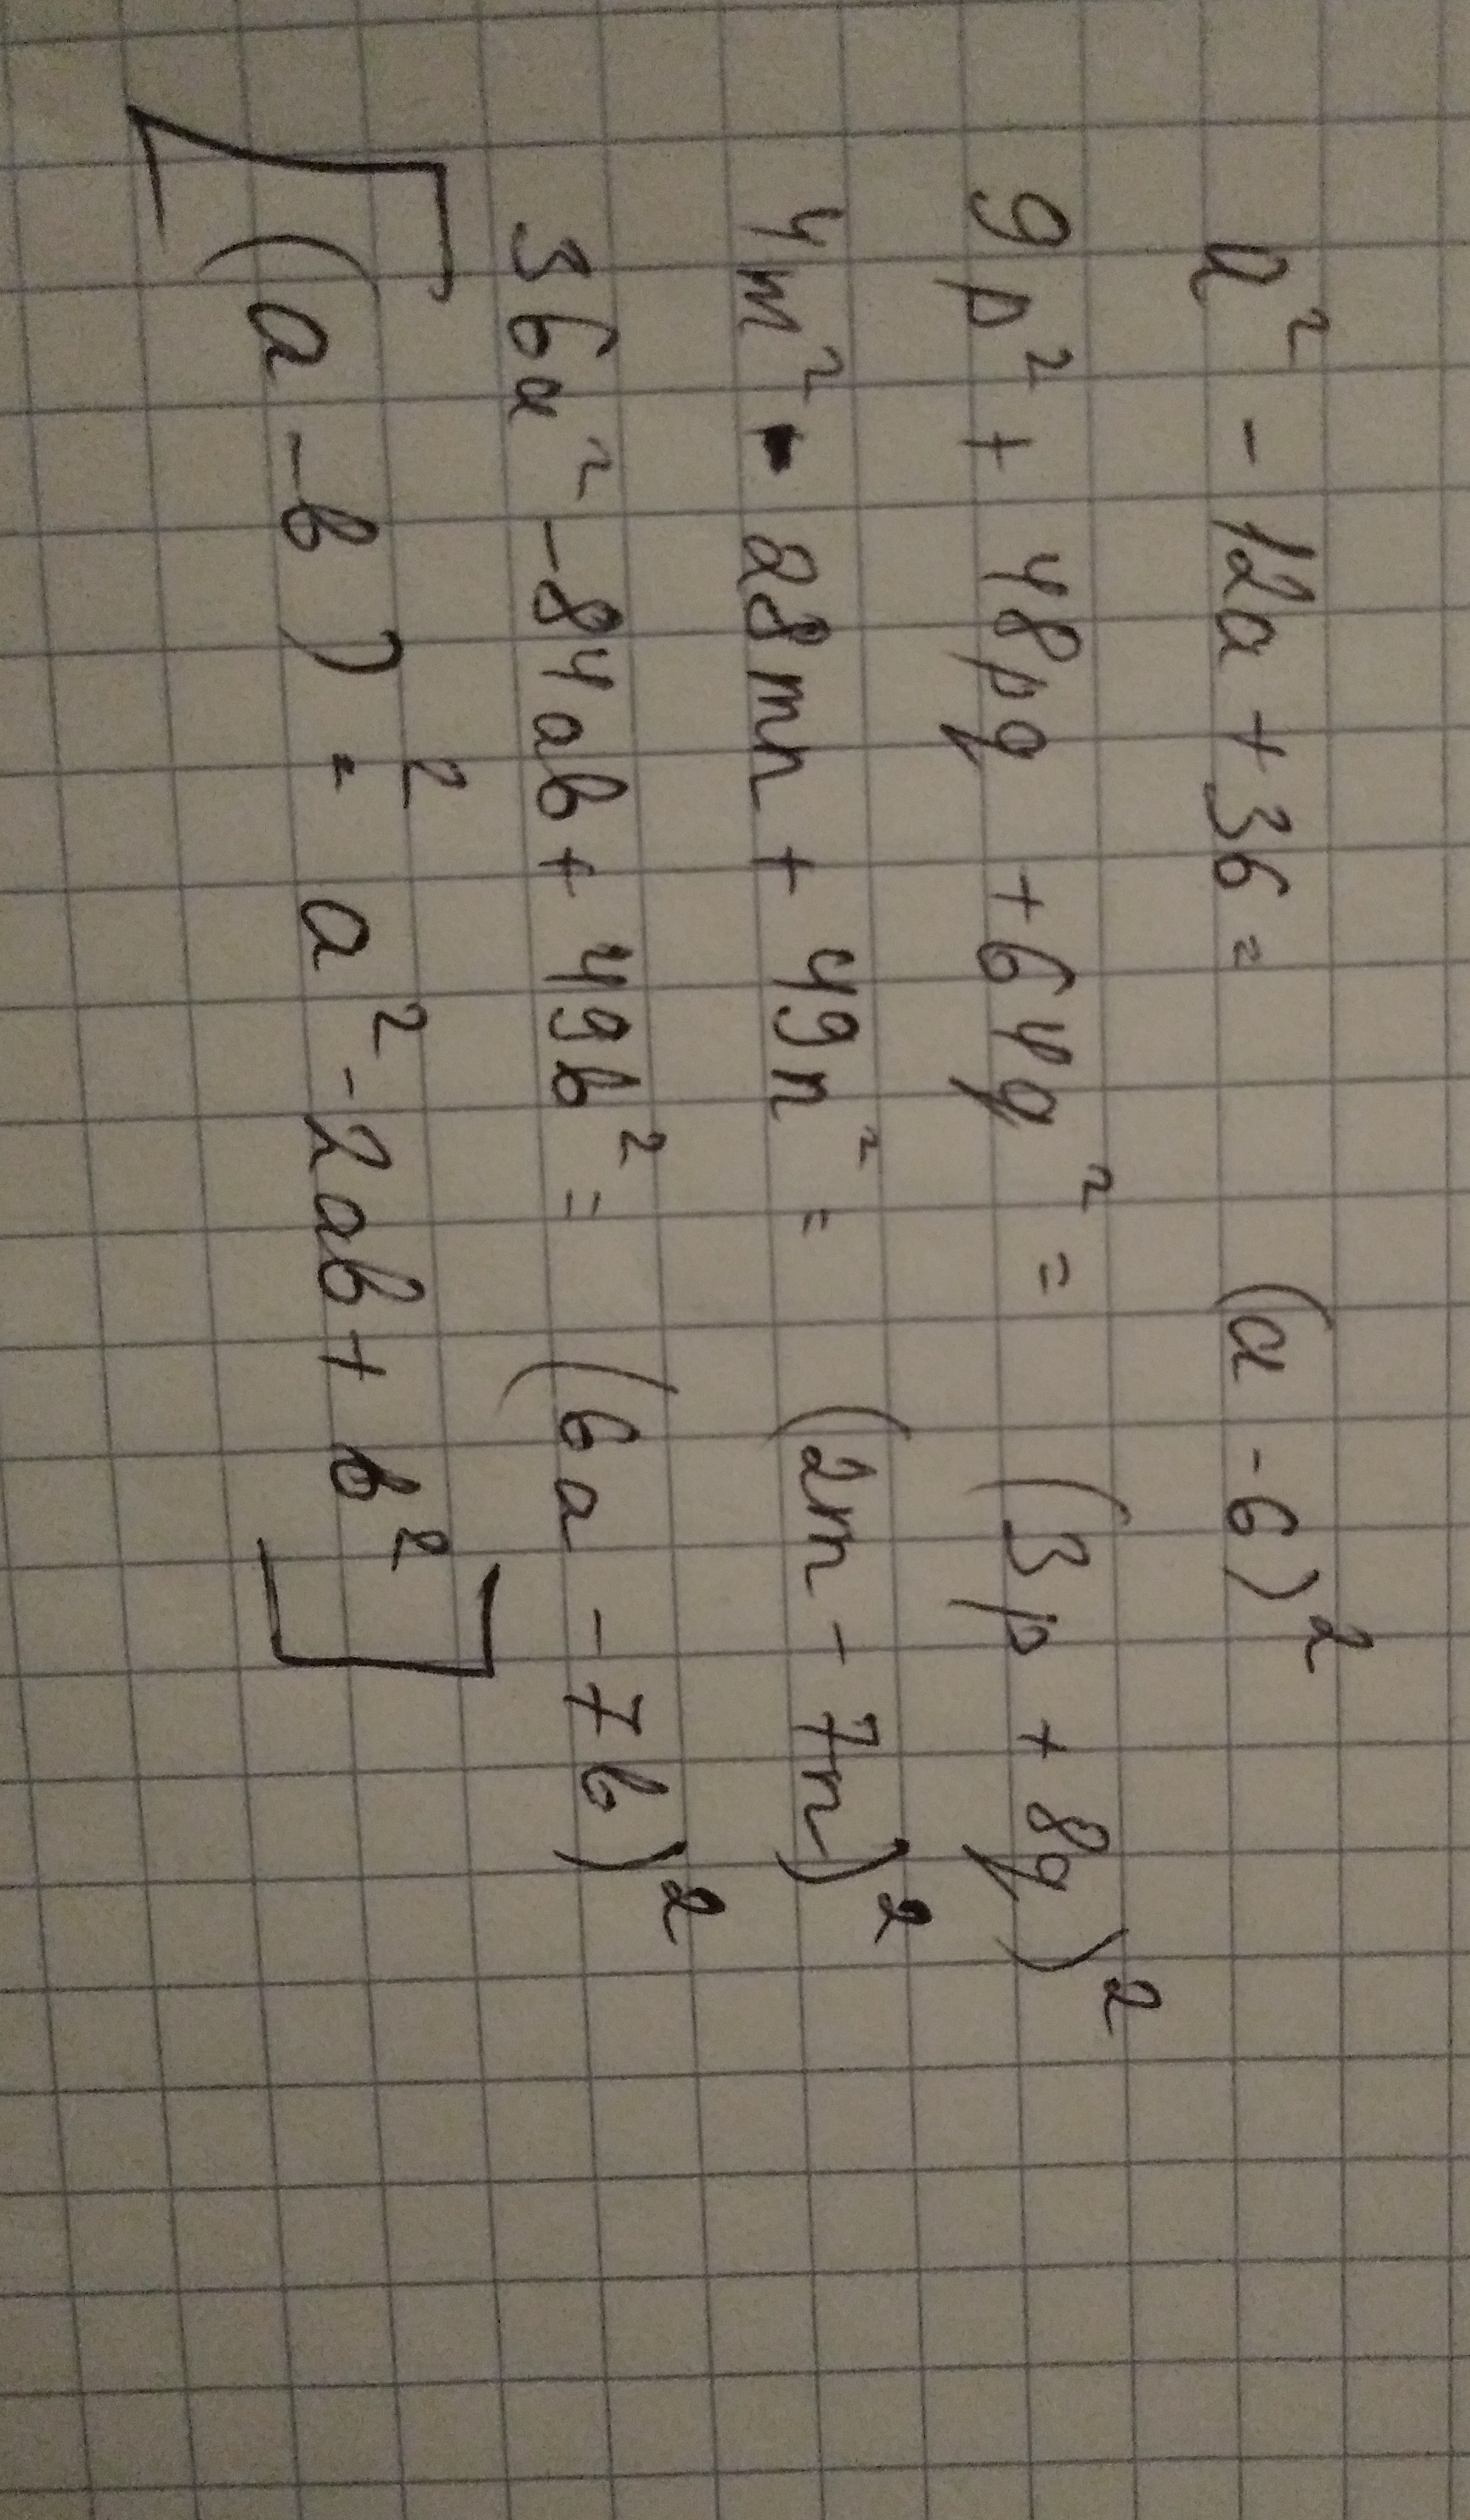 a² - 12a + 36 = (a - 6)²
9p² + 48pq + 64q² = (3p + 8q)²
4m² - 28mn + 49n² = (2m - 7n)²
36a² - 84ab + 49b² = (6a - 7b)²
[(a - b)² = a² - 2ab + b²]